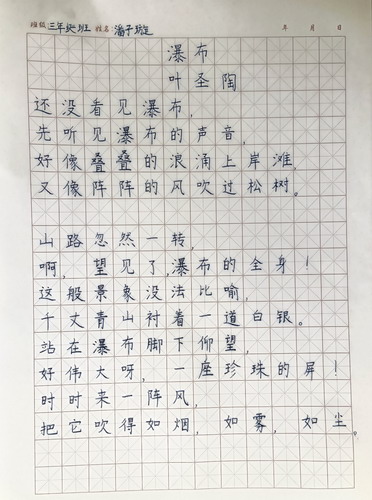 班级 三年级班 姓名 潘子璇 年 月 日
瀑布
叶圣陶
还没看见瀑布,
先听见瀑布的声音,
好像叠叠的浪涌上岸滩,
又像阵阵的风吹过松树。
山路忽然一转,
啊,望见了,瀑布的全身!
这般景象没法比喻,
千丈青山衬着一道白银。
站在瀑布脚下仰望,
好伟大呀,一座珍珠的屏!
时时来一阵风,
把它吹得如烟,如雾,如尘。